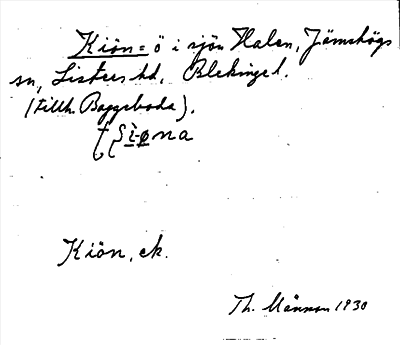 Kiön = ö i sjön Halen, Jämshögs
sn, Listers hd, Blekinge l.
(tillh. Boggeboda).
Kiön, ek.
Th. Månsson 1930